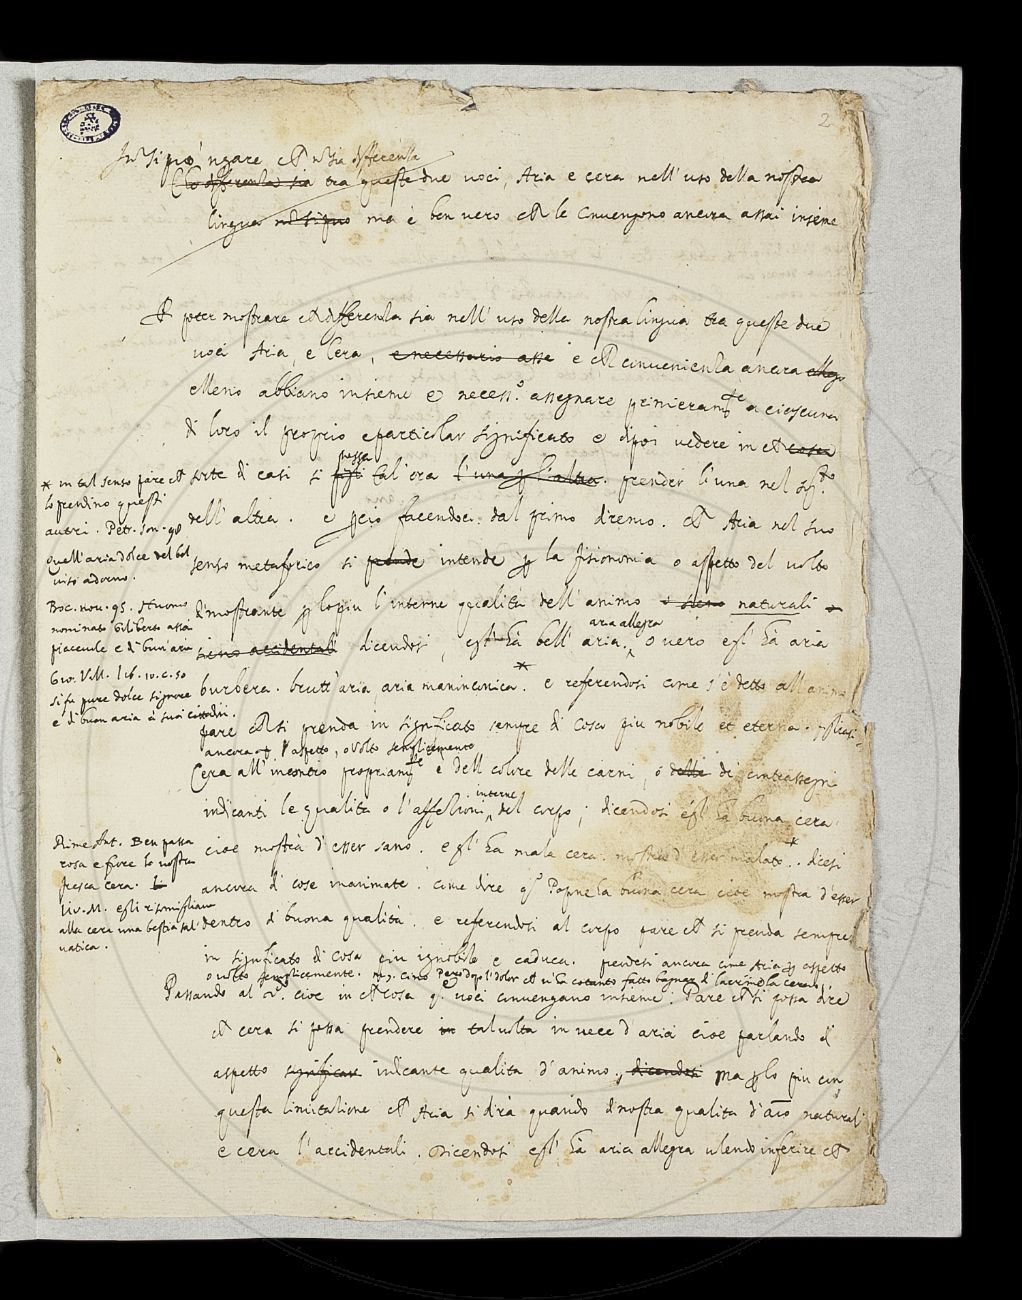 2
si può negare che non sia differenza
che differenza sia tra queste due voci, Aria e cera nell'uso della nostra
lingua non si può ma è ben vero che le convengono ancora assai insieme
A poter mostrare che differenza sia nell'uso della nostra lingua tra queste due
voci Aria, e Cera, e necessario asse e che convenienza ancora
elleno abbiano insieme è necess.o assegnare primieram.te a ciascuna
di loro il proprio e particolar significato e dipoi vedere in che cosa
possa
sorte di casi si tal'ora l'una p l'altra. prender l'una nel
dell'altra. e p ciò facendoci dal primo diremo. che Aria nel suo
senso metaforico si prende intende p la fisionomia o aspetto del volto
dimostrante p lo più l'interne qualità dell'animo o sieno naturali o
aria allegra
sieno accidentali dicendosi, egli hà bell'aria. overo egli hà aria
burbera. brutt'aria aria maninconica. * e referendosi come s'è detto all'anim
pare che si prenda in significato sempre di cosa più nobile et eterna.
ancora p l'aspetto, o volto semplicemente
Cera all'incontro propriam.te è dell colore delle carni, o delle di contrassegni
interne
indicanti le qualità o l'affezzioni del corpo; dicendosi egli hà buona cera.
cioè mostra d'esser sano. e egli hà mala cera. mostra d'esser malato *. dicesi
ancora di cose inanimate. come dire q.o Popone ha buona cera cioè mostra d'esser
dentro di buona qualità. e referendosi al corpo pare che si prenda sempre
in significato di cosa più ignobile e caduca. prendesi ancora come Aria p aspetto
o volto semplicemente. Cino Però dopo'l dolor che v'ha cotanto fatto bagnar di lacrime la cera
Passando al 2.o cioè in che cosa q.e voci convengano insieme. Pare che si possa dire
che cera si possa prendere in talvolta in vece d'aria cioè parlando di
aspetto significante indicante qualità d'animo, dicendosi ma p lo più con
questa limitazione che Aria si dirà quando dinostra qualità d'aio naturali
e cera l'accidentali. Dicendosi egli hà aria allegra volendo inferire che
* in tal senso pare che
lo prendino questi
autri. Pet. son. 90
Quell'aria dolce del bel
viso adorno.
Boc. nov. 95. Huomo
nominato Giliberto assai
piacevole e di buon'aria
Gio. Vill. lib. 10. c. 50
si fu pure dolce signore
e di buon aria a' suoi cittadini.
Rime Ant. Ben passa
rosa e fiore la vostra
fresca cera.
Liv. M. egli risomigliava
alla cera una bestia sal
vatica.